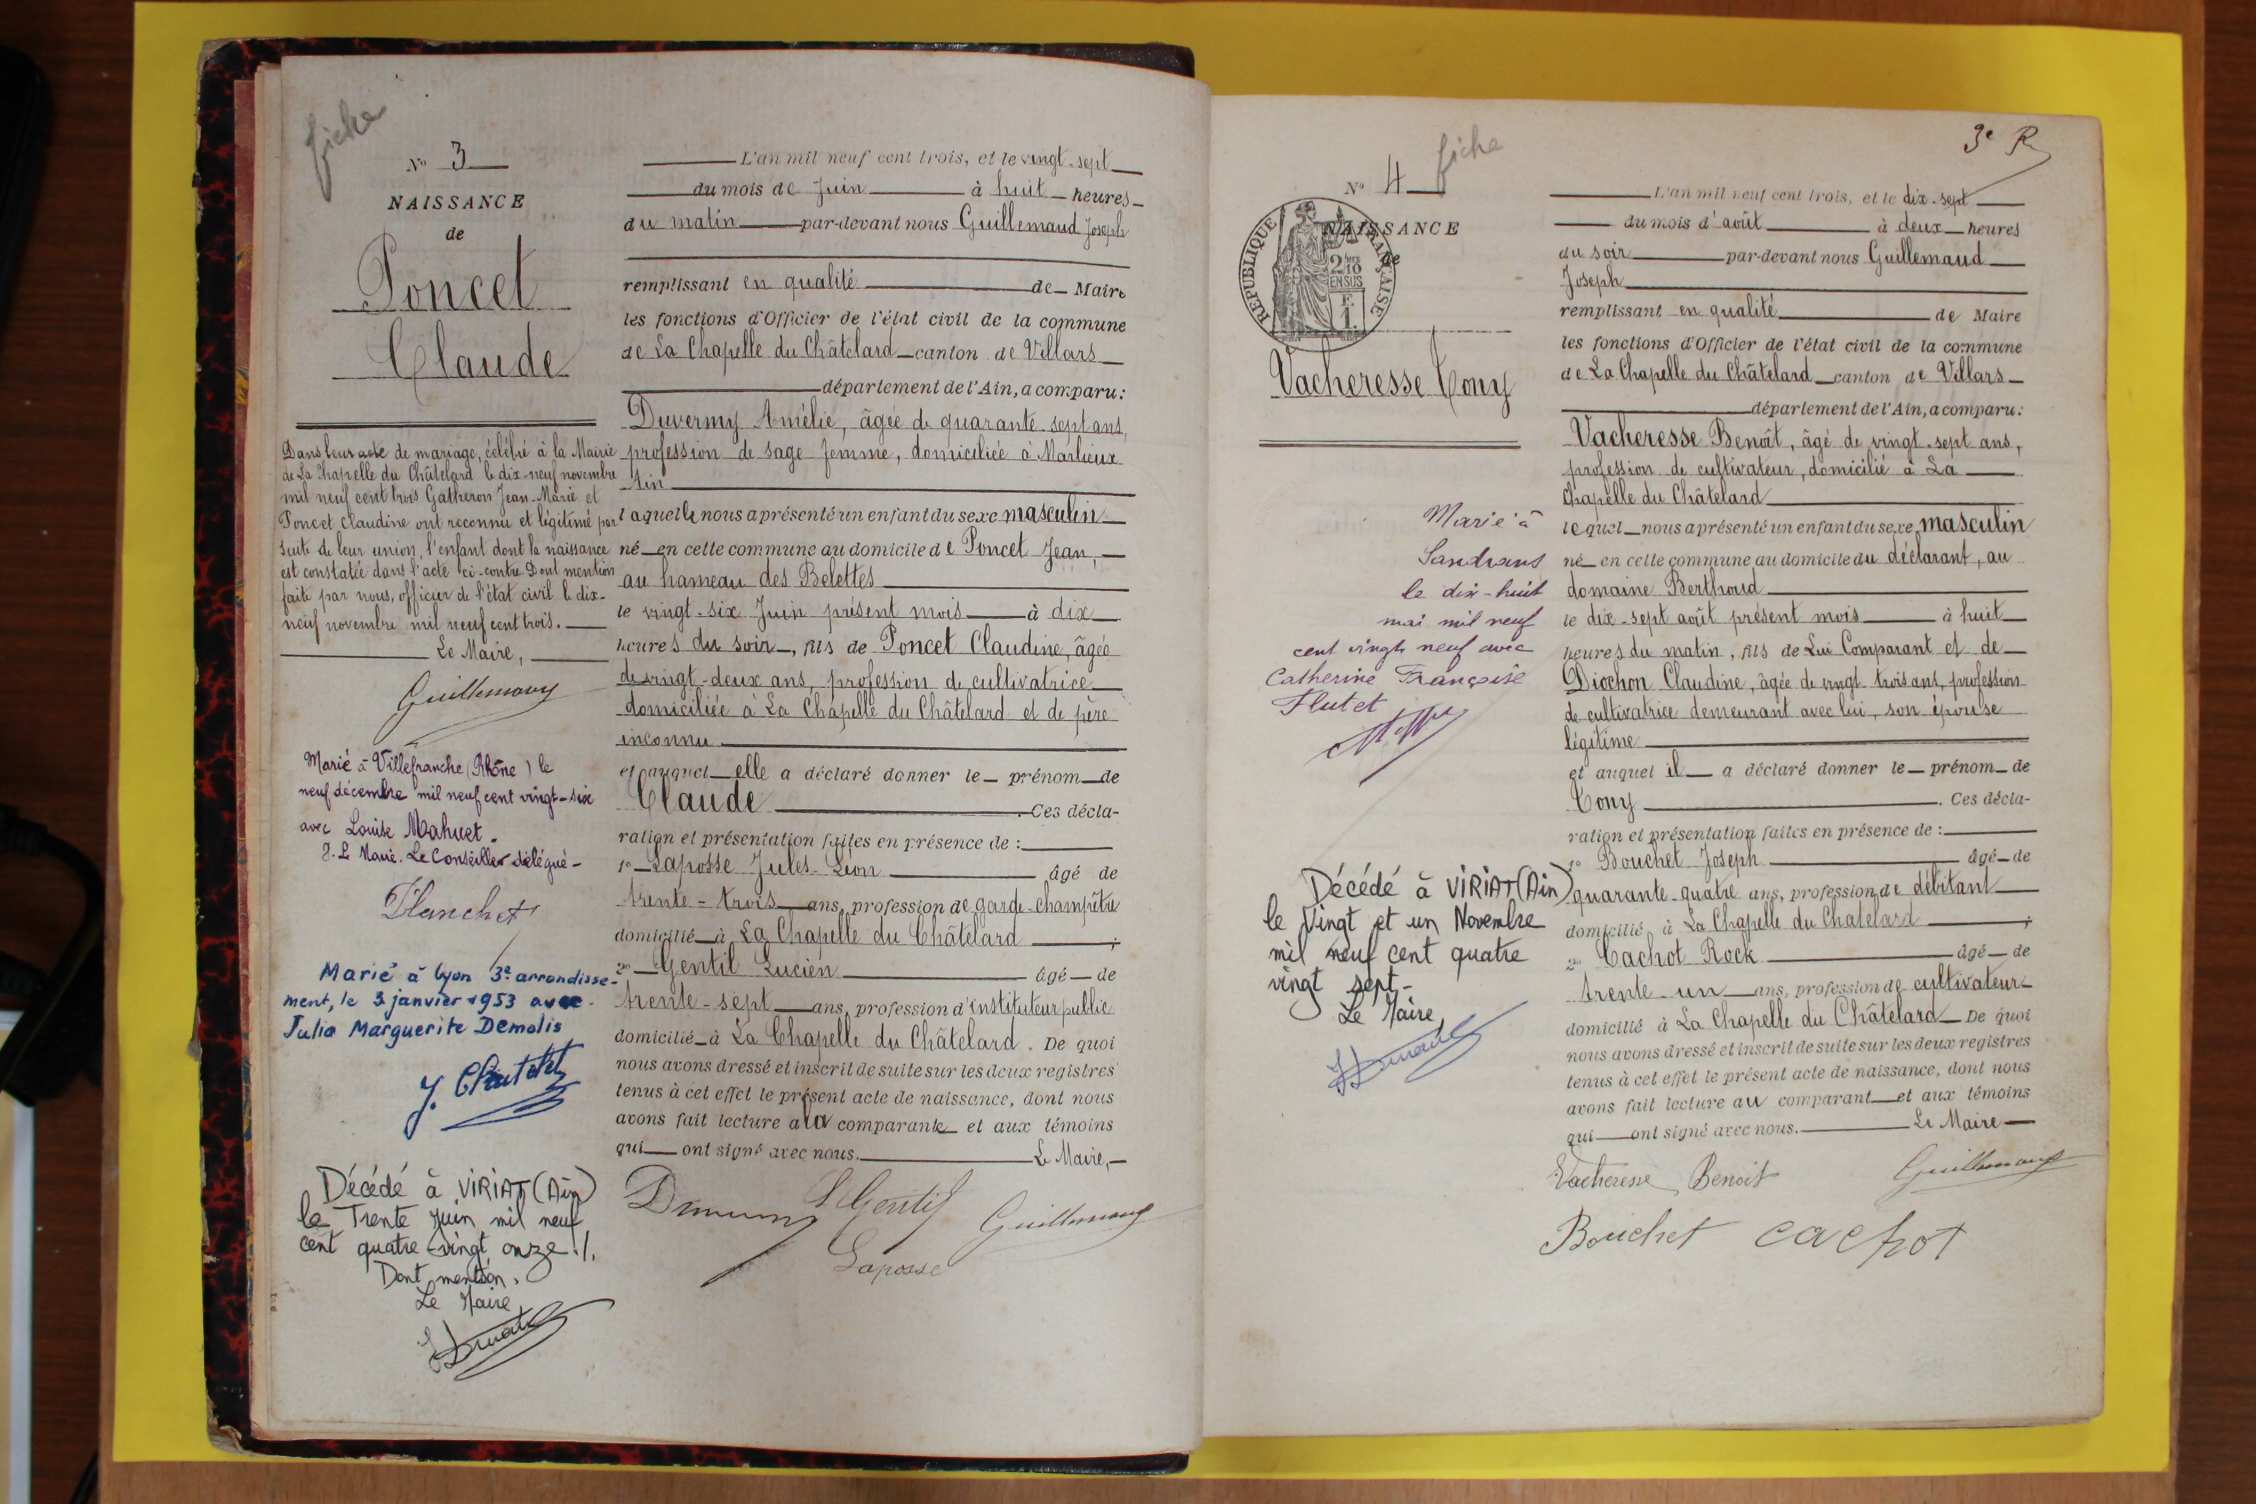 fiche
N° 3
NAISSANCE
de
Poncet
Claude
Dans leur acte de mariage, célébré à la Mairie
de La Chapelle du Châtelard le dix-neuf novembre
mil neuf cent trois Gatheron Jean-Marie et
Poncet Claudine ont reconnu et légitimé par
suite de leur union, l'enfant dont la naissance
est constatée dans l'acte ci-contre Dont mention
faite par nous, officier de l'état civil le dix-
neuf novembre mil neuf cent trois.
Le Maire,
Guillemaud
Marié à Villefranche (Rhône) le
neuf décembre mil neuf cent vingt-six
avec Louise Mahuet.
P. Le Maire. Le Conseiller délégué
Planchet
Marié à Lyon 3e arrondisse-
ment, le 3 janvier 1953 avec
Julia Marguerite Demolis
J. Chatelet
Décédé à VIRIAT (Ain)
le Trente Juin mil neuf
cent quatre-vingt onze ./.
Dont mention.
Le Maire
L'an mil neuf cent trois, et le vingt-sept
du mois de Juin à huit heures
du matin par-devant nous Guillemaud Joseph
remplissant en qualité de Maire
les fonctions d'Officier de l'état civil de la commune
de La Chapelle du Châtelard canton de Villars
département de l'Ain, a comparu:
Duverny Amélie, âgée de quarante-sept ans,
profession de sage femme, domiciliée à Marlieux
Ain
laquelle nous a présenté un enfant du sexe masculin
né en cette commune au domicile de Poncet Jean,
au hameau des Belettes
le vingt-six Juin présent mois à dix
heures du soir, fils de Poncet Claudine, âgée
de vingt-deux ans, profession de cultivatrice
domiciliée à La Chapelle du Châtelard et de père
inconnu
et auquel elle a déclaré donner le prénom de
Claude . Ces décla-
ration et présentation faites en présence de :
1° Laposse Jules-Léon âgé de
trente-trois ans, profession de garde-champêtre
domicilié à La Chapelle du Châtelard ;
2° Gentil Lucien âgé de
trente-sept ans, profession d'instituteur public
domicilié à La Chapelle du Châtelard. De quoi
nous avons dressé et inscrit de suite sur les deux registres
tenus à cet effet le présent acte de naissance, dont nous
avons fait lecture à la comparante et aux témoins
qui ont signé avec nous. Le Maire,
L Gentil Guillemaud
Laposse
3e R
N° 4 fiche
NAISSANCE
de
RÉPUBLIQUE FRANÇAISE
2/10 EN SUS
F. 1.
Vacheresse Tony
Marié à
Sandrans
le dix-huit
mai mil neuf
cent vingt neuf avec
Catherine Françoise
Flutet
Décédé à VIRIAT (Ain)
le Vingt et un Novembre
mil neuf cent quatre
vingt sept-
Le Maire
L'an mil neuf cent trois, et le dix-sept
du mois d'août à deux heures
du soir par-devant nous Guillemaud
Joseph
remplissant en qualité de Maire
les fonctions d'Officier de l'état civil de la commune
de La Chapelle du Châtelard canton de Villars
département de l'Ain, a comparu:
Vacheresse Benoît, âgé de vingt-sept ans,
profession de cultivateur, domicilié à La
Chapelle du Châtelard
lequel nous a présenté un enfant du sexe masculin
né en cette commune au domicile du déclarant, au
domaine Berthoud
le dix-sept août présent mois à huit
heures du matin, fils de Lui Comparant et de
Diochon Claudine, âgée de vingt-trois ans, profession
de cultivatrice demeurant avec lui, son épouse
légitime
et auquel il a déclaré donner le prénom de
Tony . Ces décla-
ration et présentation faites en présence de :
1° Bouchet Joseph âgé de
quarante-quatre ans, profession de débitant
domicilié à La Chapelle du Chatelard ;
2° Cachot Rock âgé de
trente-un ans, profession de cultivateur
domicilié à La Chapelle du Châtelard De quoi
nous avons dressé et inscrit de suite sur les deux registres
tenus à cet effet le présent acte de naissance, dont nous
avons fait lecture au comparant et aux témoins
qui ont signé avec nous. Le Maire
Vacheresse Benoit Guillemaud
Bouchet Cachot